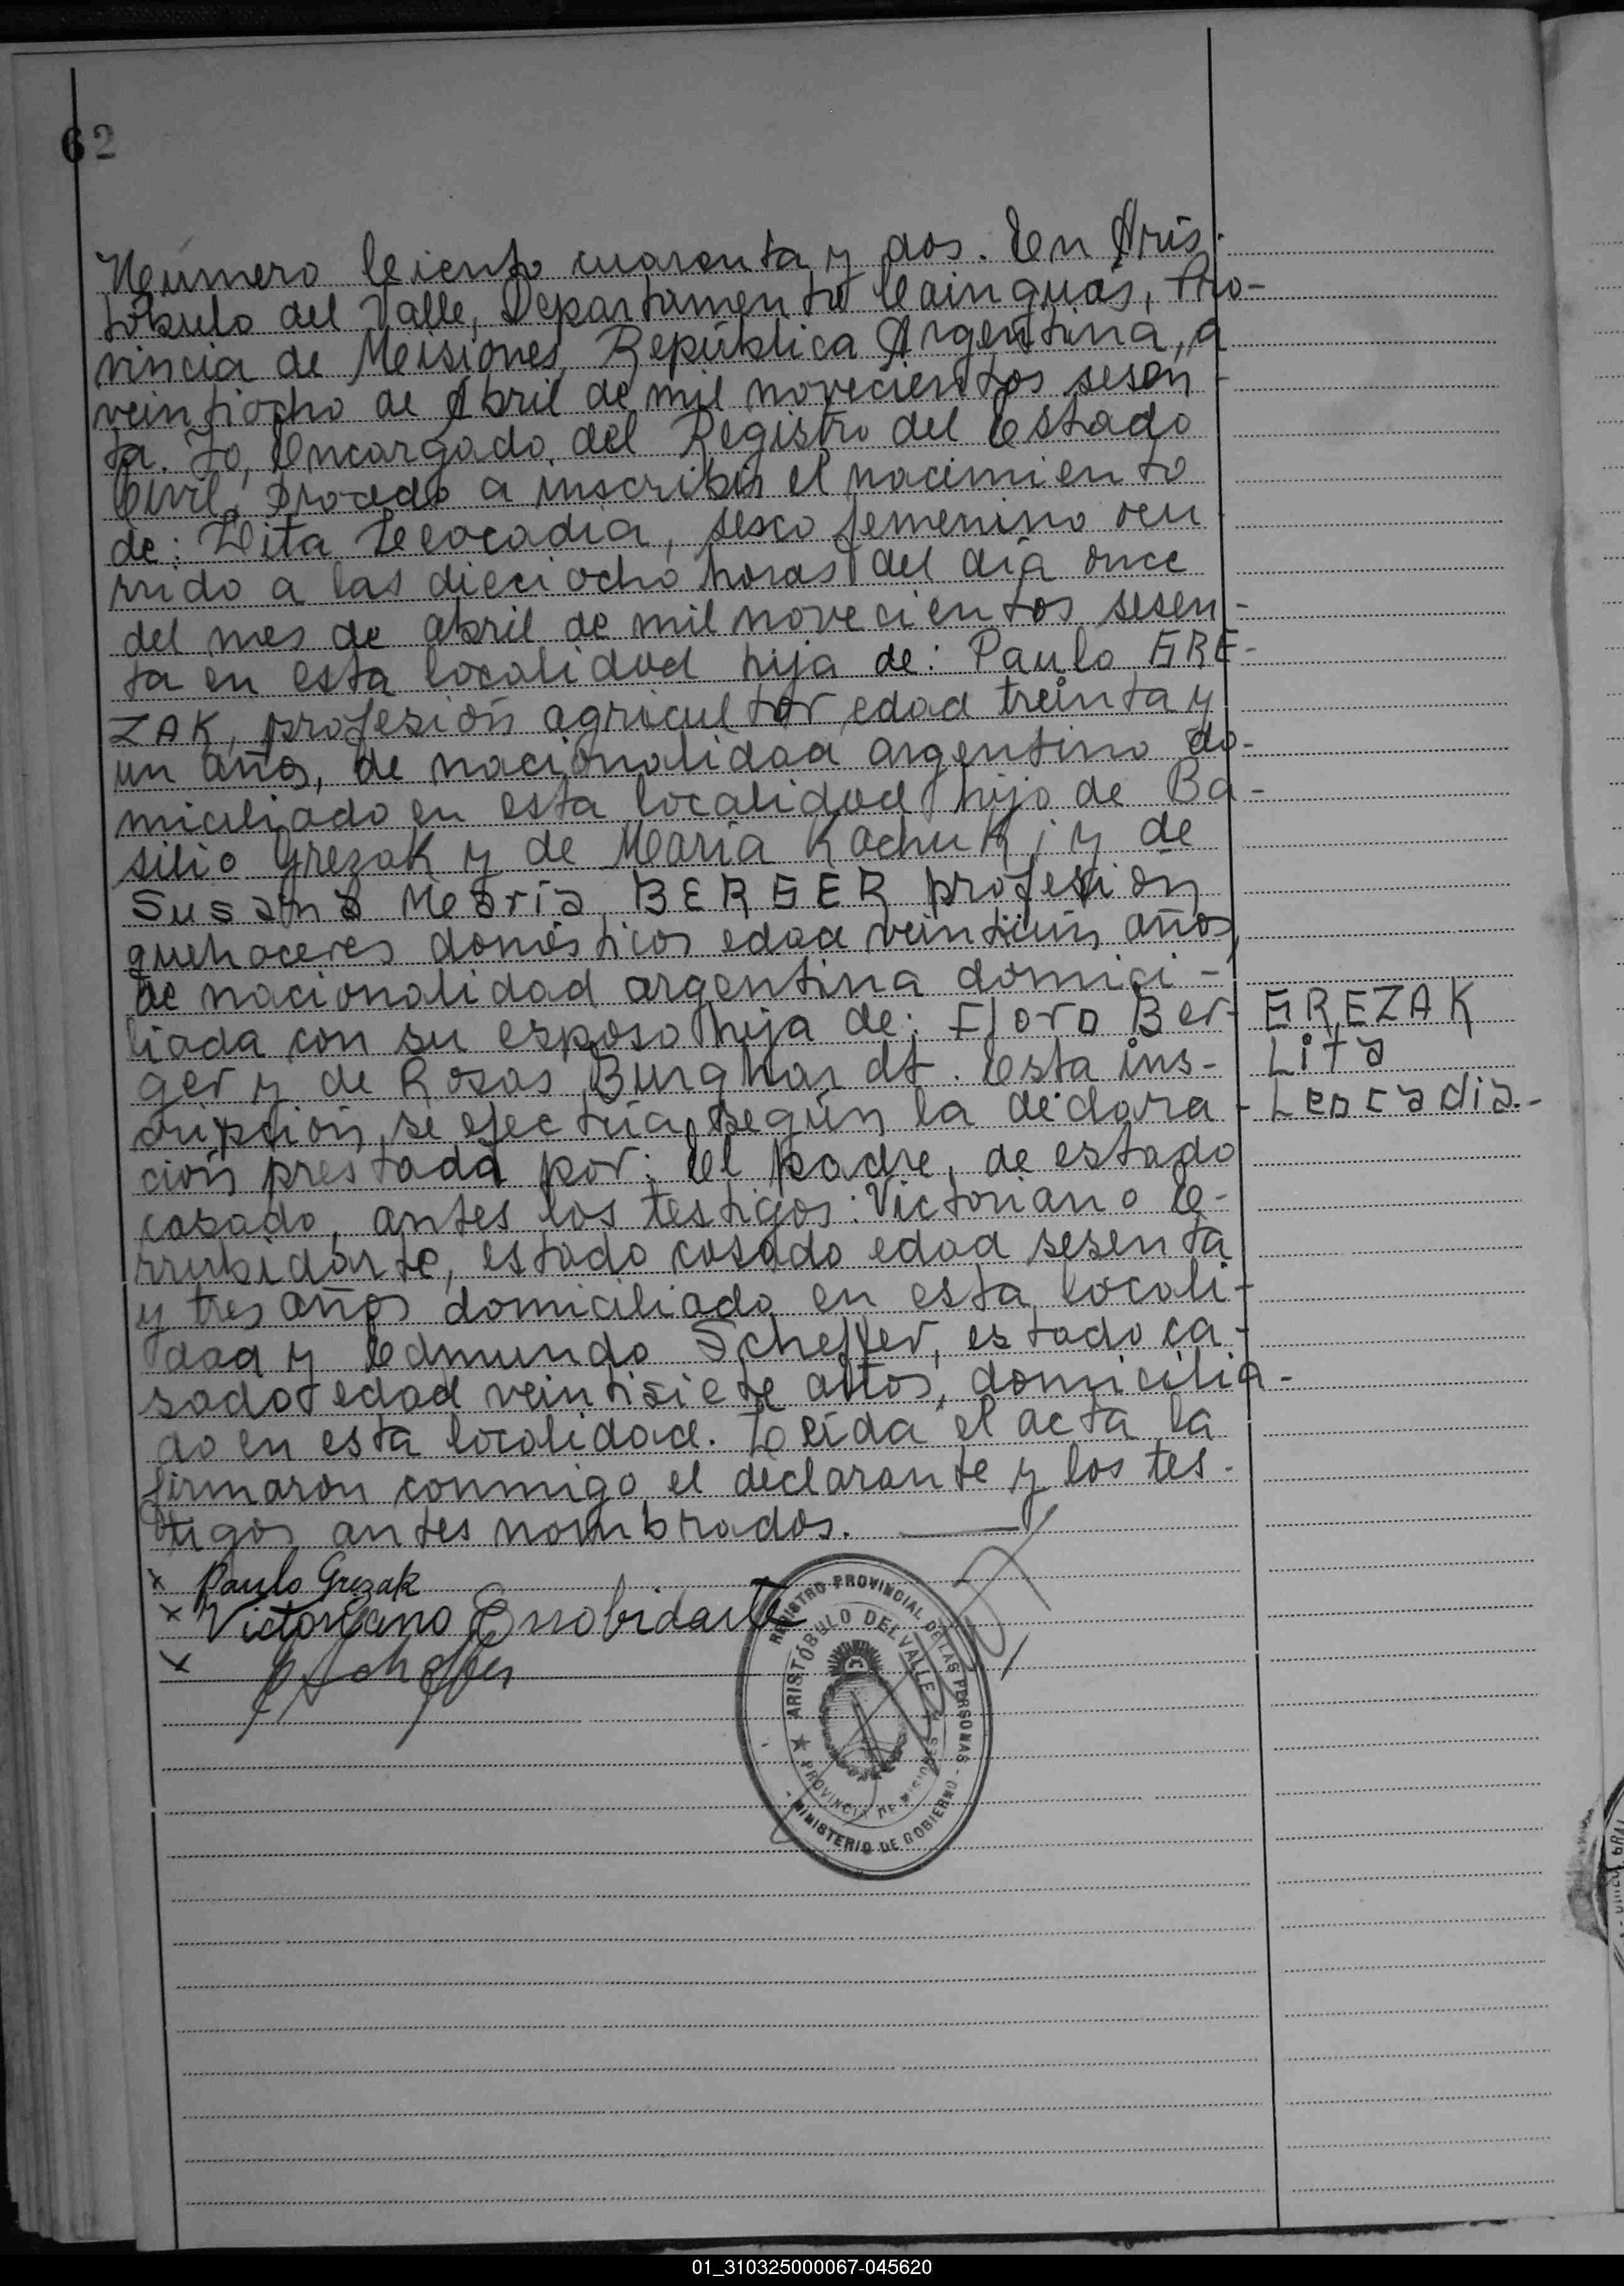 62
Número Ciento cuarenta y dos. En Aris-
tóbulo del Valle, Departamento Cainguás, Pro-
vincia de Misiones, República Argentina, a
veintiocho de Abril de mil novecientos sesen
ta. Yo, Encargado del Registro del Estado
Civil, procedo a inscribir el nacimiento
de: Lita Leocadia, sexo femenino ocu
rrido a las dieciocho horas del día once
del mes de abril de mil novecientos sesen-
ta en esta localidad hija de: Paulo GRE-
ZAK, profesión agricultor edad treinta y
un años, de nacionalidad argentino do-
miciliado en esta localidad hijo de Ba-
silio Grezak y de María Kachuk; y de
Susana María BERGER profesión
quehaceres domésticos edad veintiún años,
de nacionalidad argentina domici-
liada con su esposo hija de: Floro Ber-
ger y de Rosas Burghardt. Esta ins-
cripción, se efectúa, según la declara-
ción prestada por: el padre, de estado
casado, antes los testigos: Victoriano E-
rrubidarte, estado casado edad sesenta
y tres años domiciliado en esta locali-
dad y Edmundo Scheffer, estado ca-
sado edad veintisiete años, domicilia-
do en esta localidad. Leída el acta la
firmaron conmigo el declarante y los tes-
tigos antes nombrados.
GREZAK
Lita
Leocadia.-
x Paulo Grezak
x Victoriano Errobidarte
x E Scheffer
REGISTRO PROVINCIAL DE LAS PERSONAS
ARISTÓBULO DEL VALLE
PROVINCIA DE MISIONES
MINISTERIO DE GOBIERNO
01_310325000067-045620